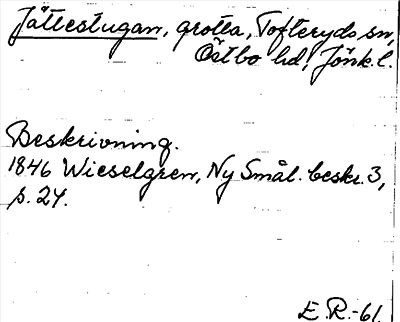 Jättestugan, grotta, Tofteryds sn,
Östbo hd, Jönk.l.
Beskrivning.
1846 Wieselgren, Ny Smål. beskr. 3,
s. 24.
E.R.-61.